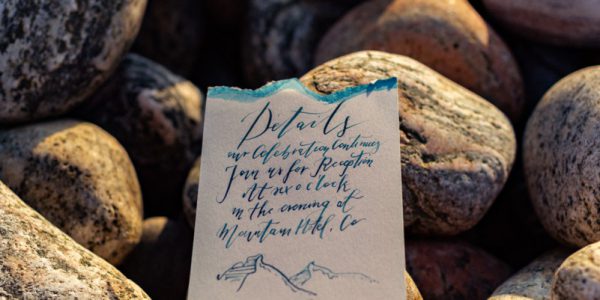 Details
our Celebration Continues
Join us for Reception
At six o Clock
in the evening at
Mountains Hotel, Co